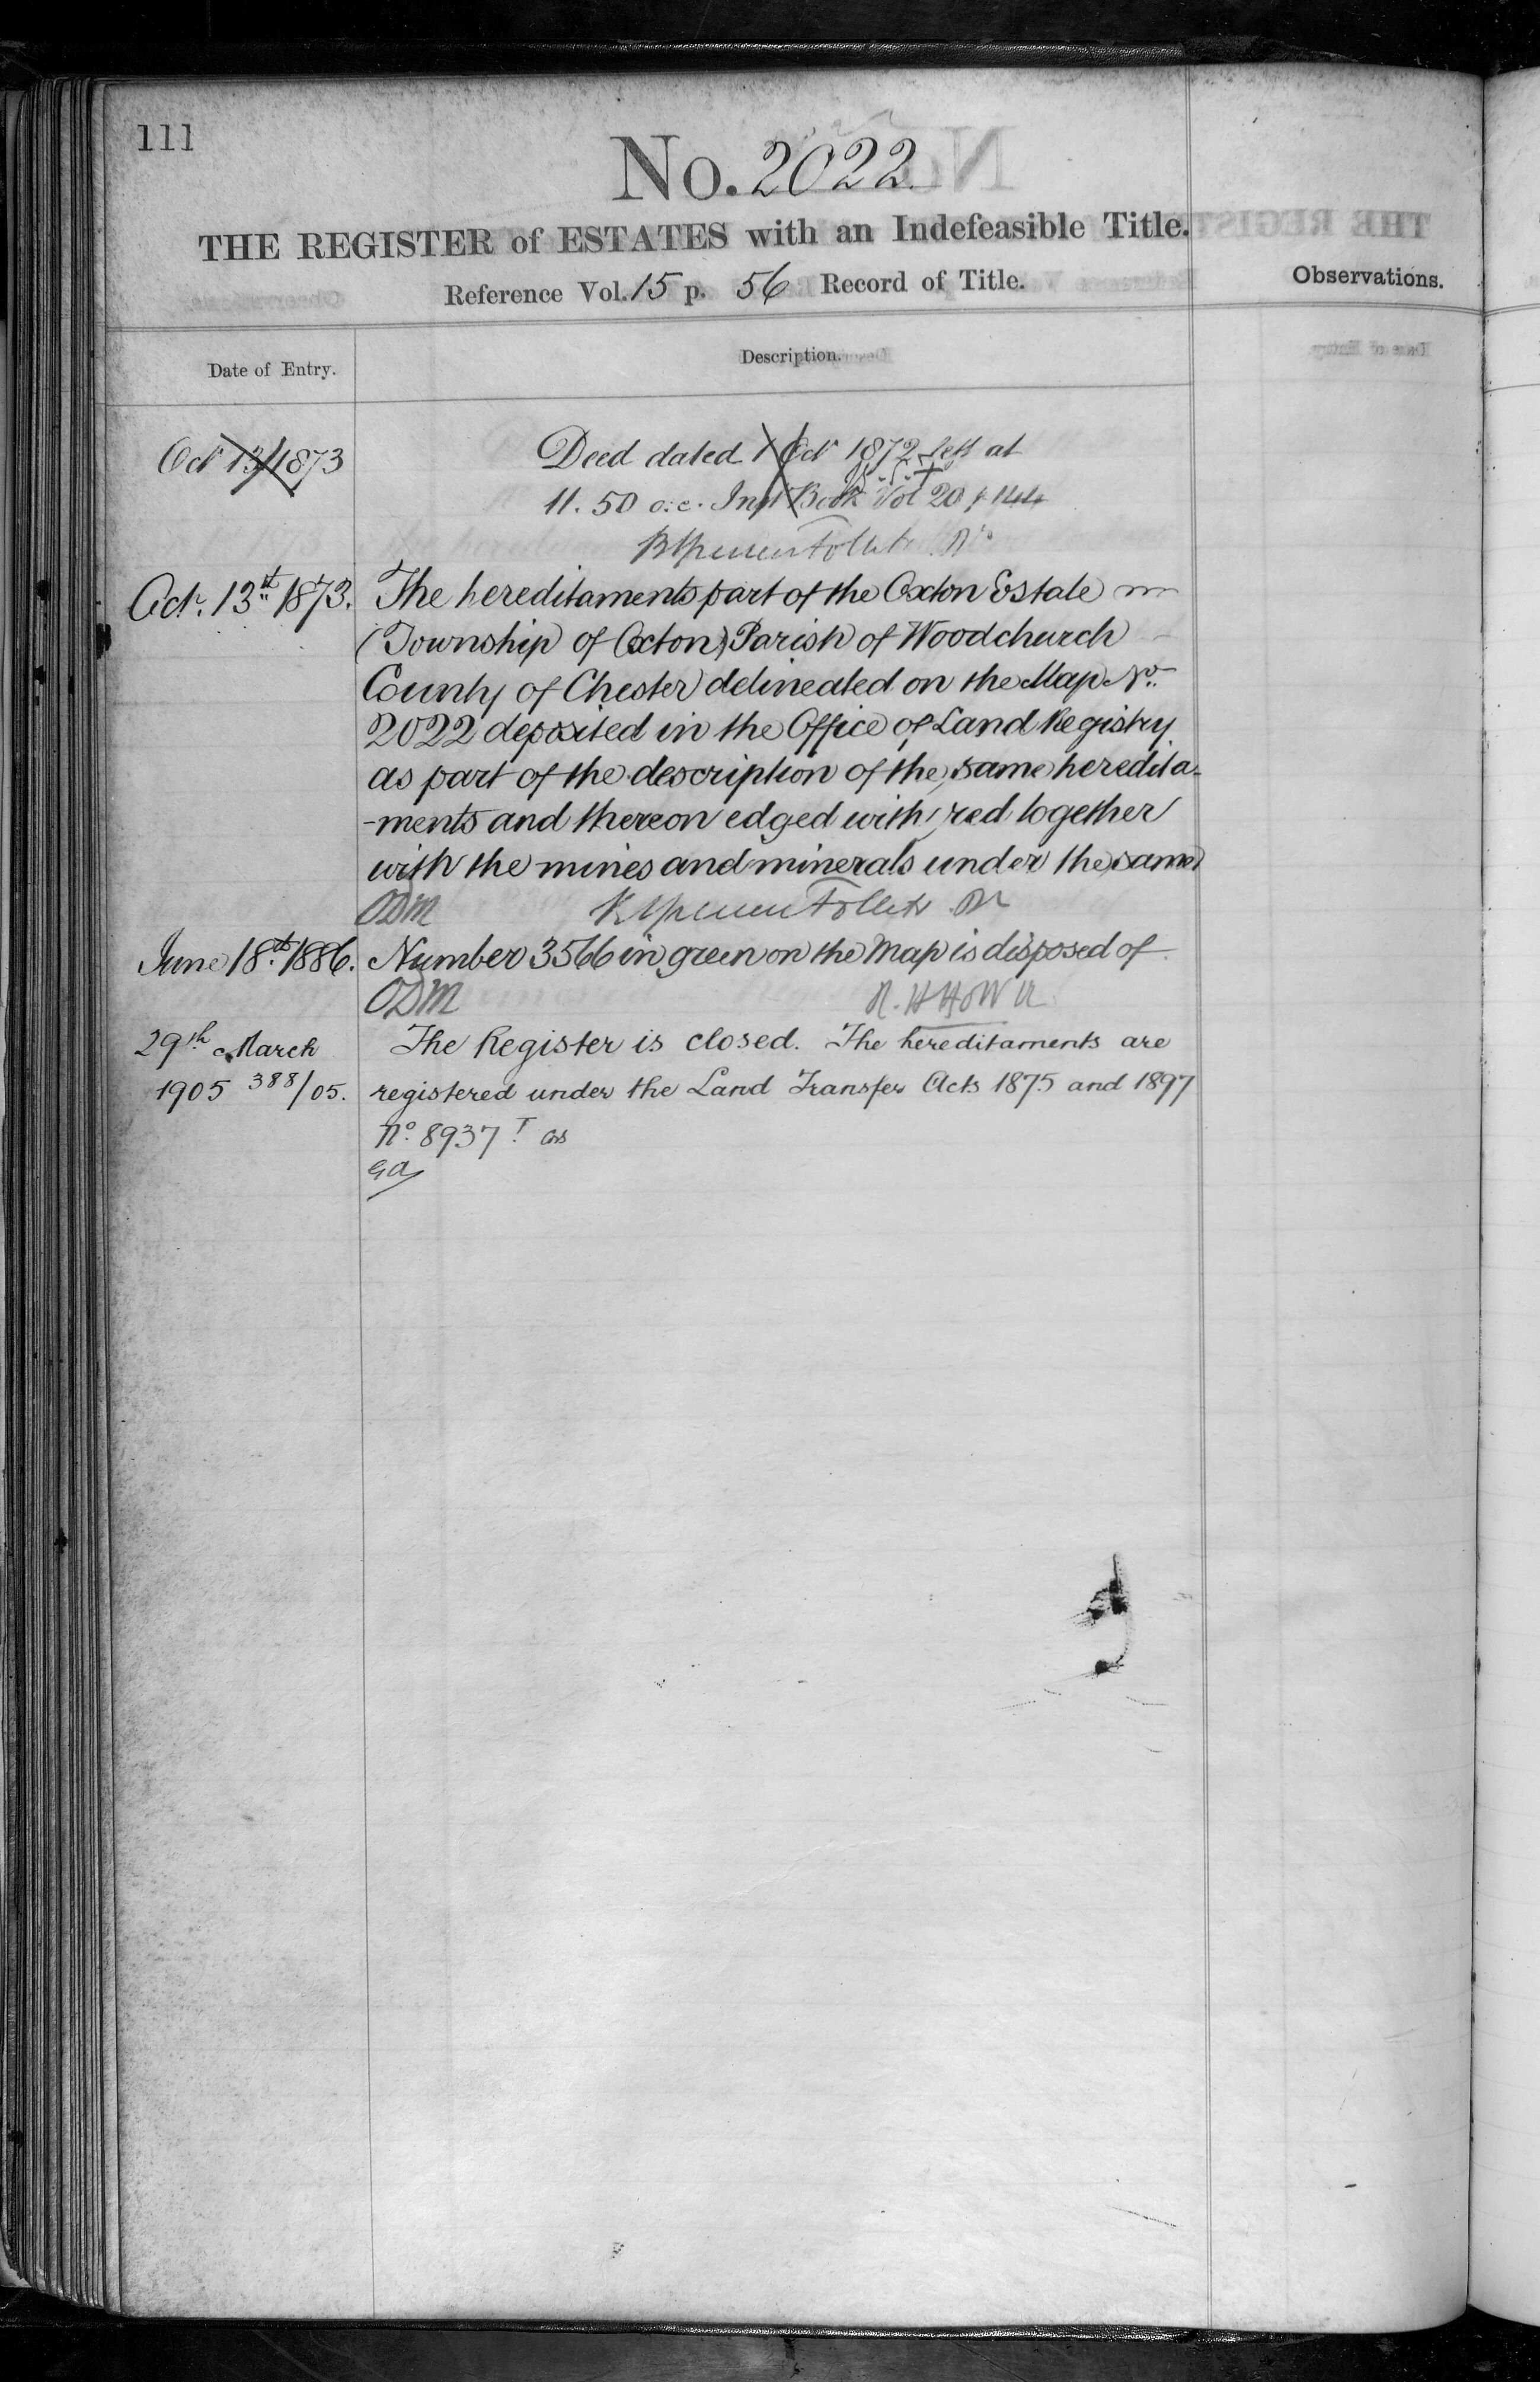 111
No. 2022
THE REGISTER of ESTATES with an Indefeasible Title.
Reference Vol. 15 p. 56 Record of Title.
Observations.
Date of Entry.
Description.
Oct 13/1873
Deed dated 1 Oct 1872 left at
11.50 o.c. Inst Book Vol 20 p 144
Oct. 13th 1873.
The hereditaments part of the Oxton Estate
(Township of Oxton) Parish of Woodchurch
County of Chester) delineated on the Map No.
2022 deposited in the Office of Land Registry
as part of the description of the same heredita-
-ments and thereon edged with red together
with the mines and minerals under the same
ODM
June 18th 1886.
Number 3566 in green on the Map is disposed of
ODM
29th March
1905 388/05.
The Register is closed. The hereditaments are
registered under the Land Transfer Acts 1875 and 1897
No. 8937